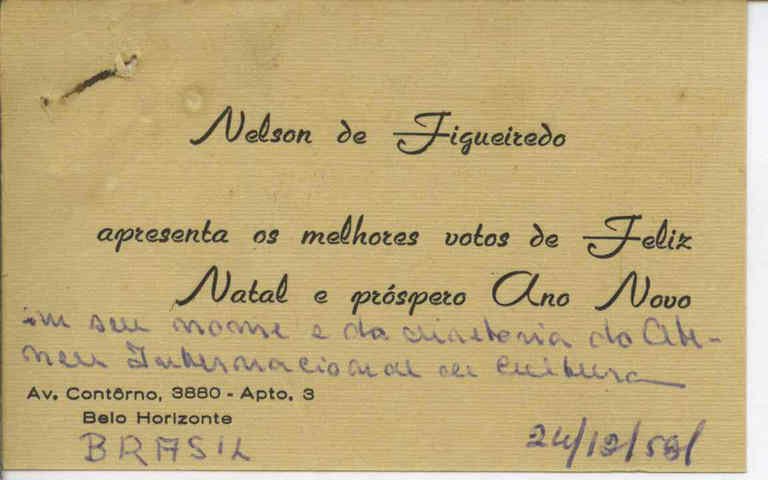 Nelson de Figueiredo
apresenta os melhores votos de Feliz
Natal e próspero Ano Novo
em seu nome e da diretoria do Ate-
neu Internacional de Cultura
Av. Contôrno, 3880 - Apto. 3
Belo Horizonte
BRASIL
24/12/59